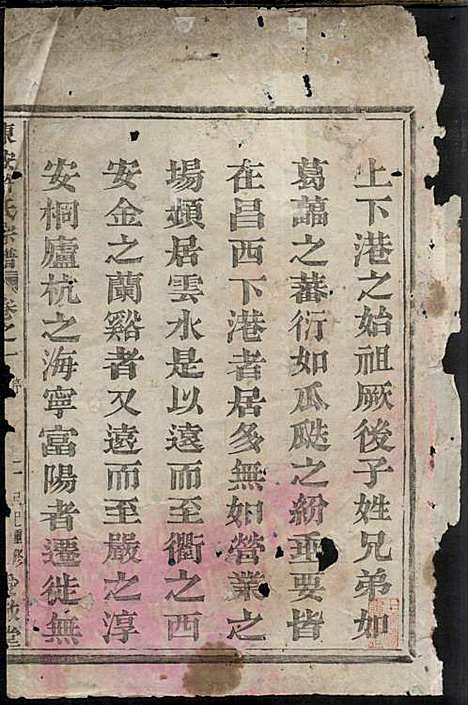 上下港之始祖厥後子姓兄弟如
葛藟之蕃衍如瓜瓞之紛垂要皆
在昌西下港者居多無如營業之
場頻居雲水是以遠而至衢之西
安金之蘭谿者又遠而至嚴之淳
安桐廬杭之海寧富陽者遷徙無
東安 氏宗譜 卷之一 二 己巳重修 堂